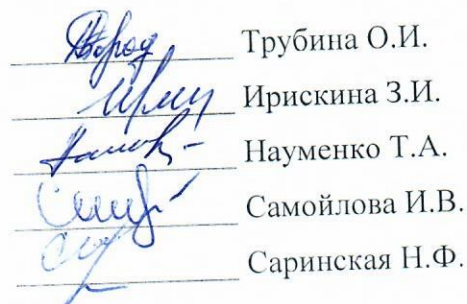 Трубина О.И.
Ирискина З.И.
Науменко Т.А.
Самойлова И.В.
Саринская Н.Ф.